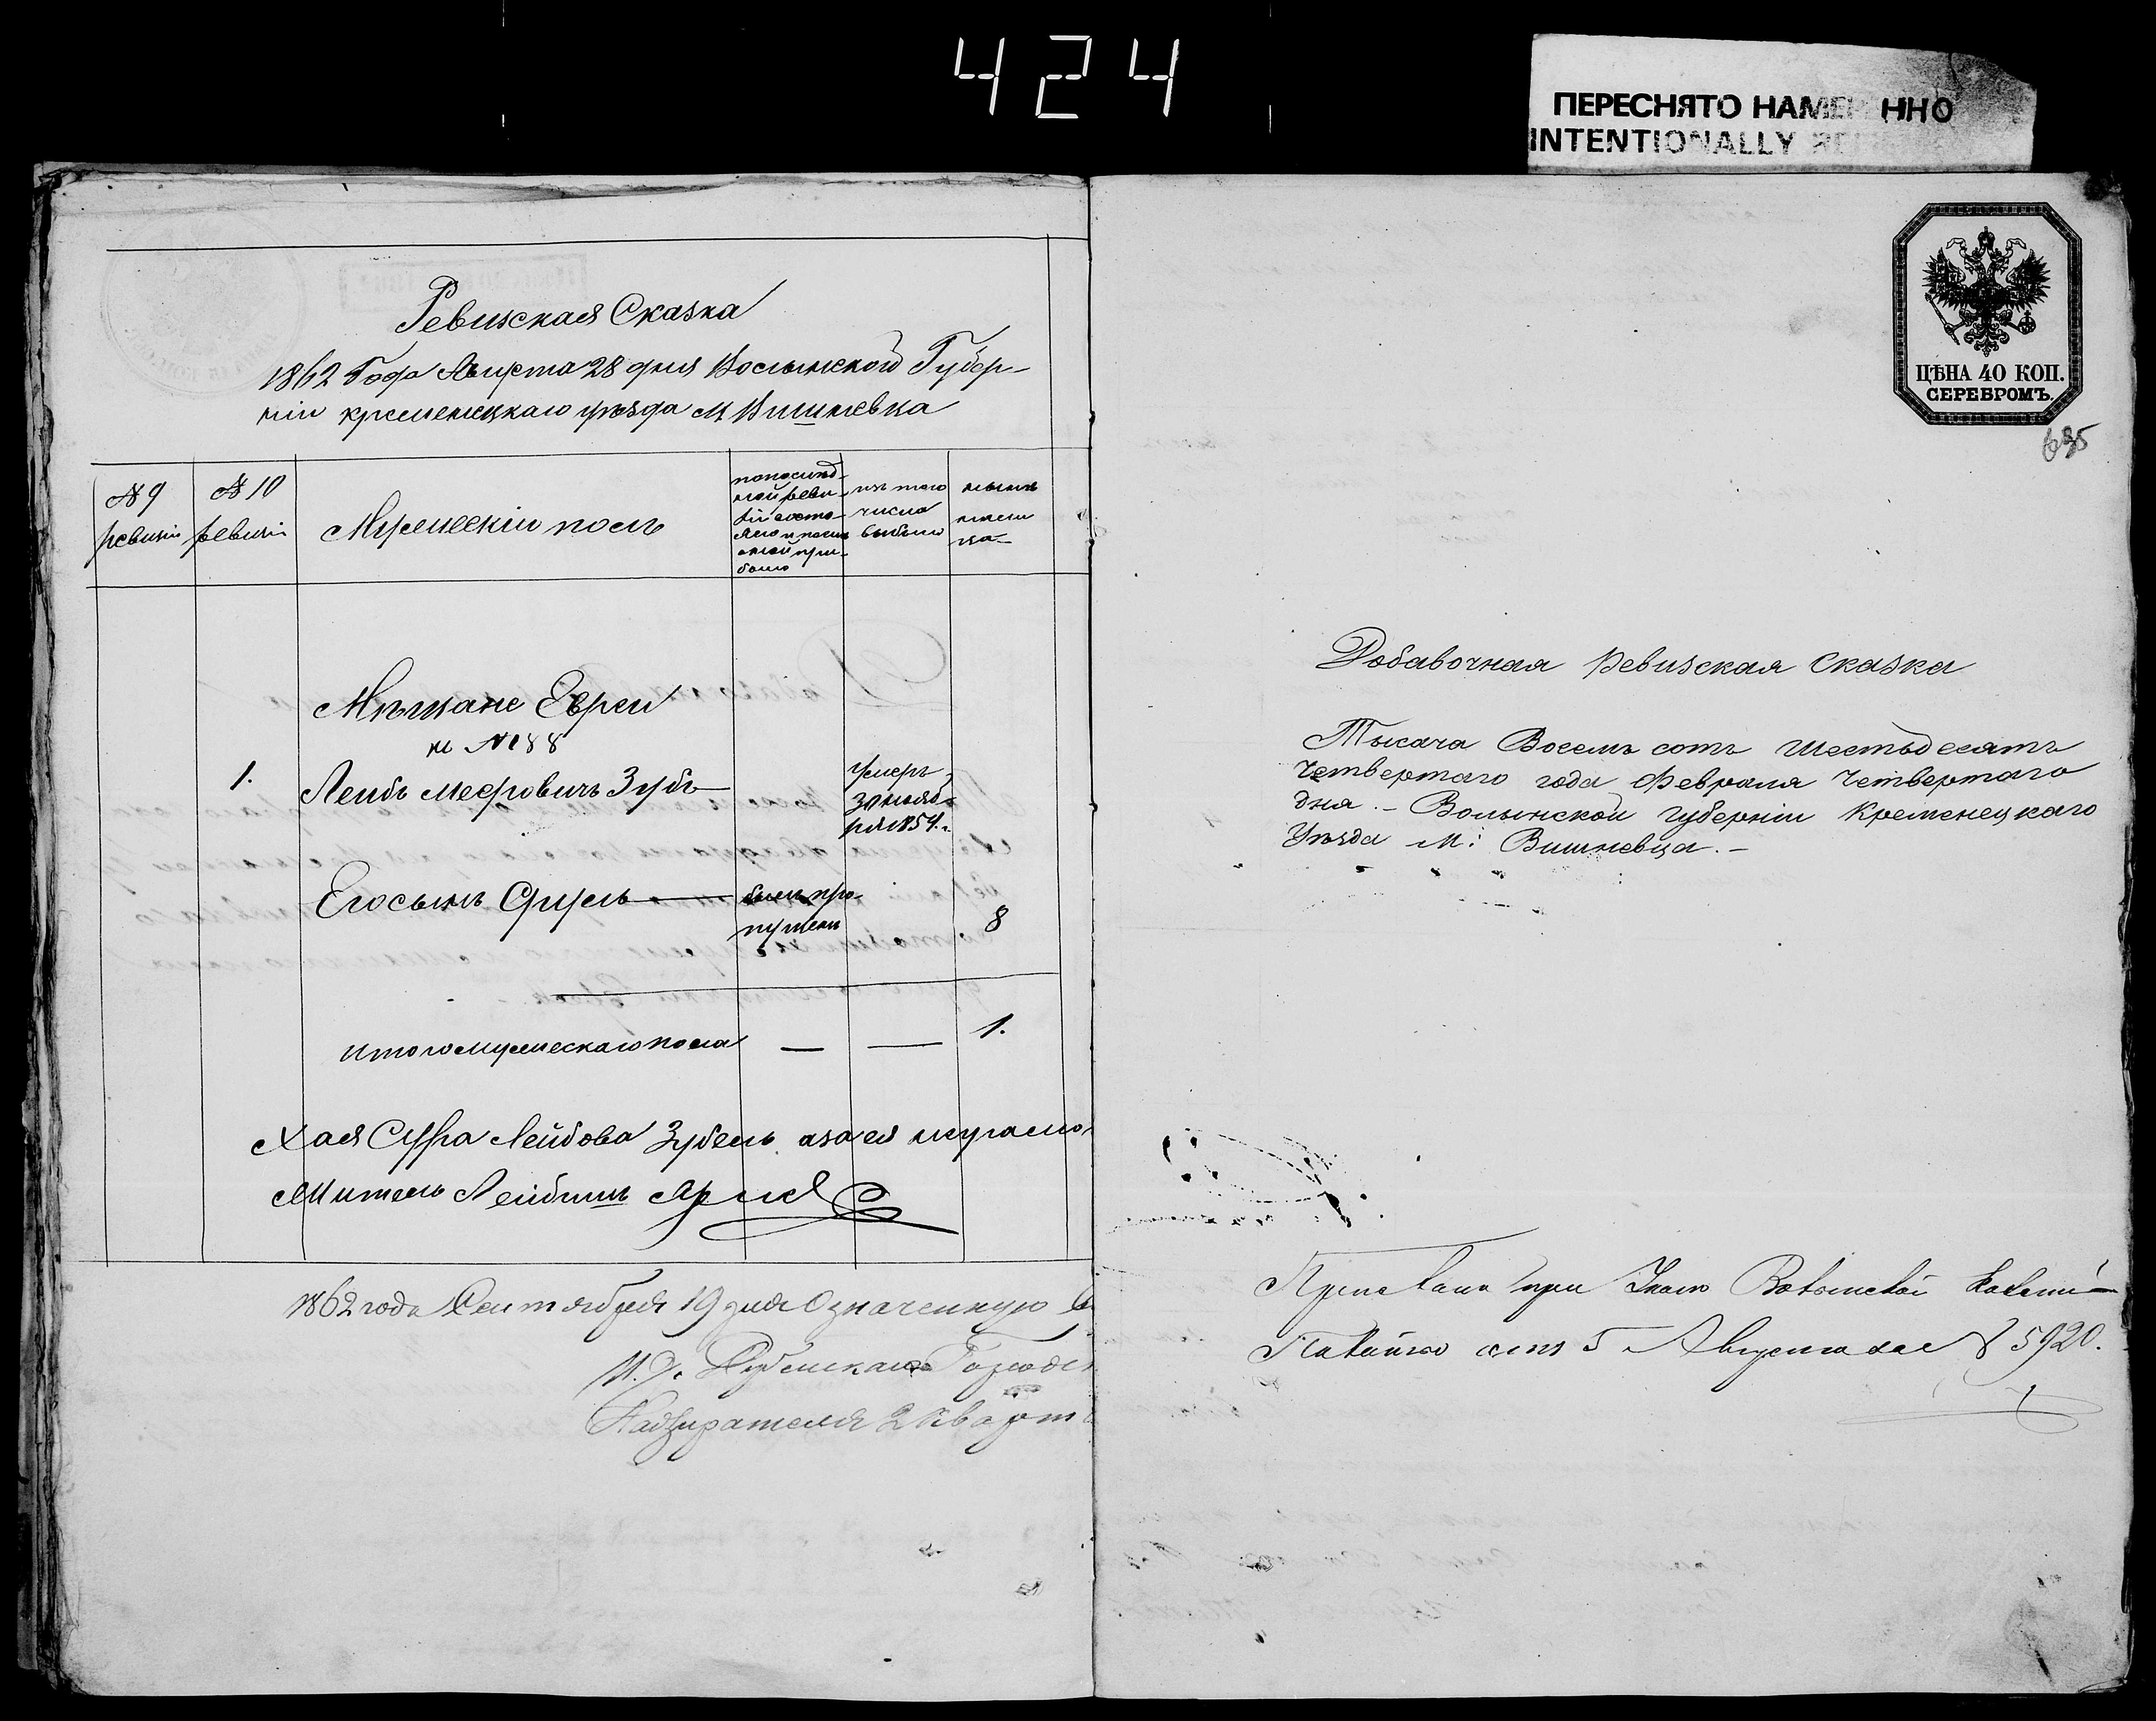 424
ПЕРЕСНЯТО НАМЕ ННО
INTENTIONALLY
Ревизская Сказка
1862 Года Августа 28 дня Волынской Губер-
ніи кременецкаго уѣзда м Вишневца
№ 9
ревизіи
№ 10
ревизіи
Мужескій полъ
по послѣд-
ней реви-
зіи состо-
яло и послѣ
оной при-
было
изъ того
числа
выбыло
нынѣ
на лицо
Мѣщане Евреи
к №188
1.
Лейбъ Мееровичъ Зубъ
Умеръ
30 нояб-
ря 1854 г.
Его сынъ Сруль
былъ про-
пущенъ
8
Итого мужескаго пола — — 1.
Хая Сура Лейбова Зубель. а за ея неграмо-
Житель Лейбишъ
1862 года Сентября 19 дня Означенную
И. Д. Дубенскаго Городс
Надзирателя 2 Кварт
ЦѢНА 40 КОП.
СЕРЕБРОМЪ.
695
Добавочная Ревизская Сказка
Тысяча Восемь сотъ шестьдесятъ
Четвертаго года Февраля Четвертаго
дня. — Волынской Губерніи Кременецкаго
Уѣзда М: Вишневца. —
при Указѣ Волынской Казенной
Палаты отъ 5 Августа за № 5920.